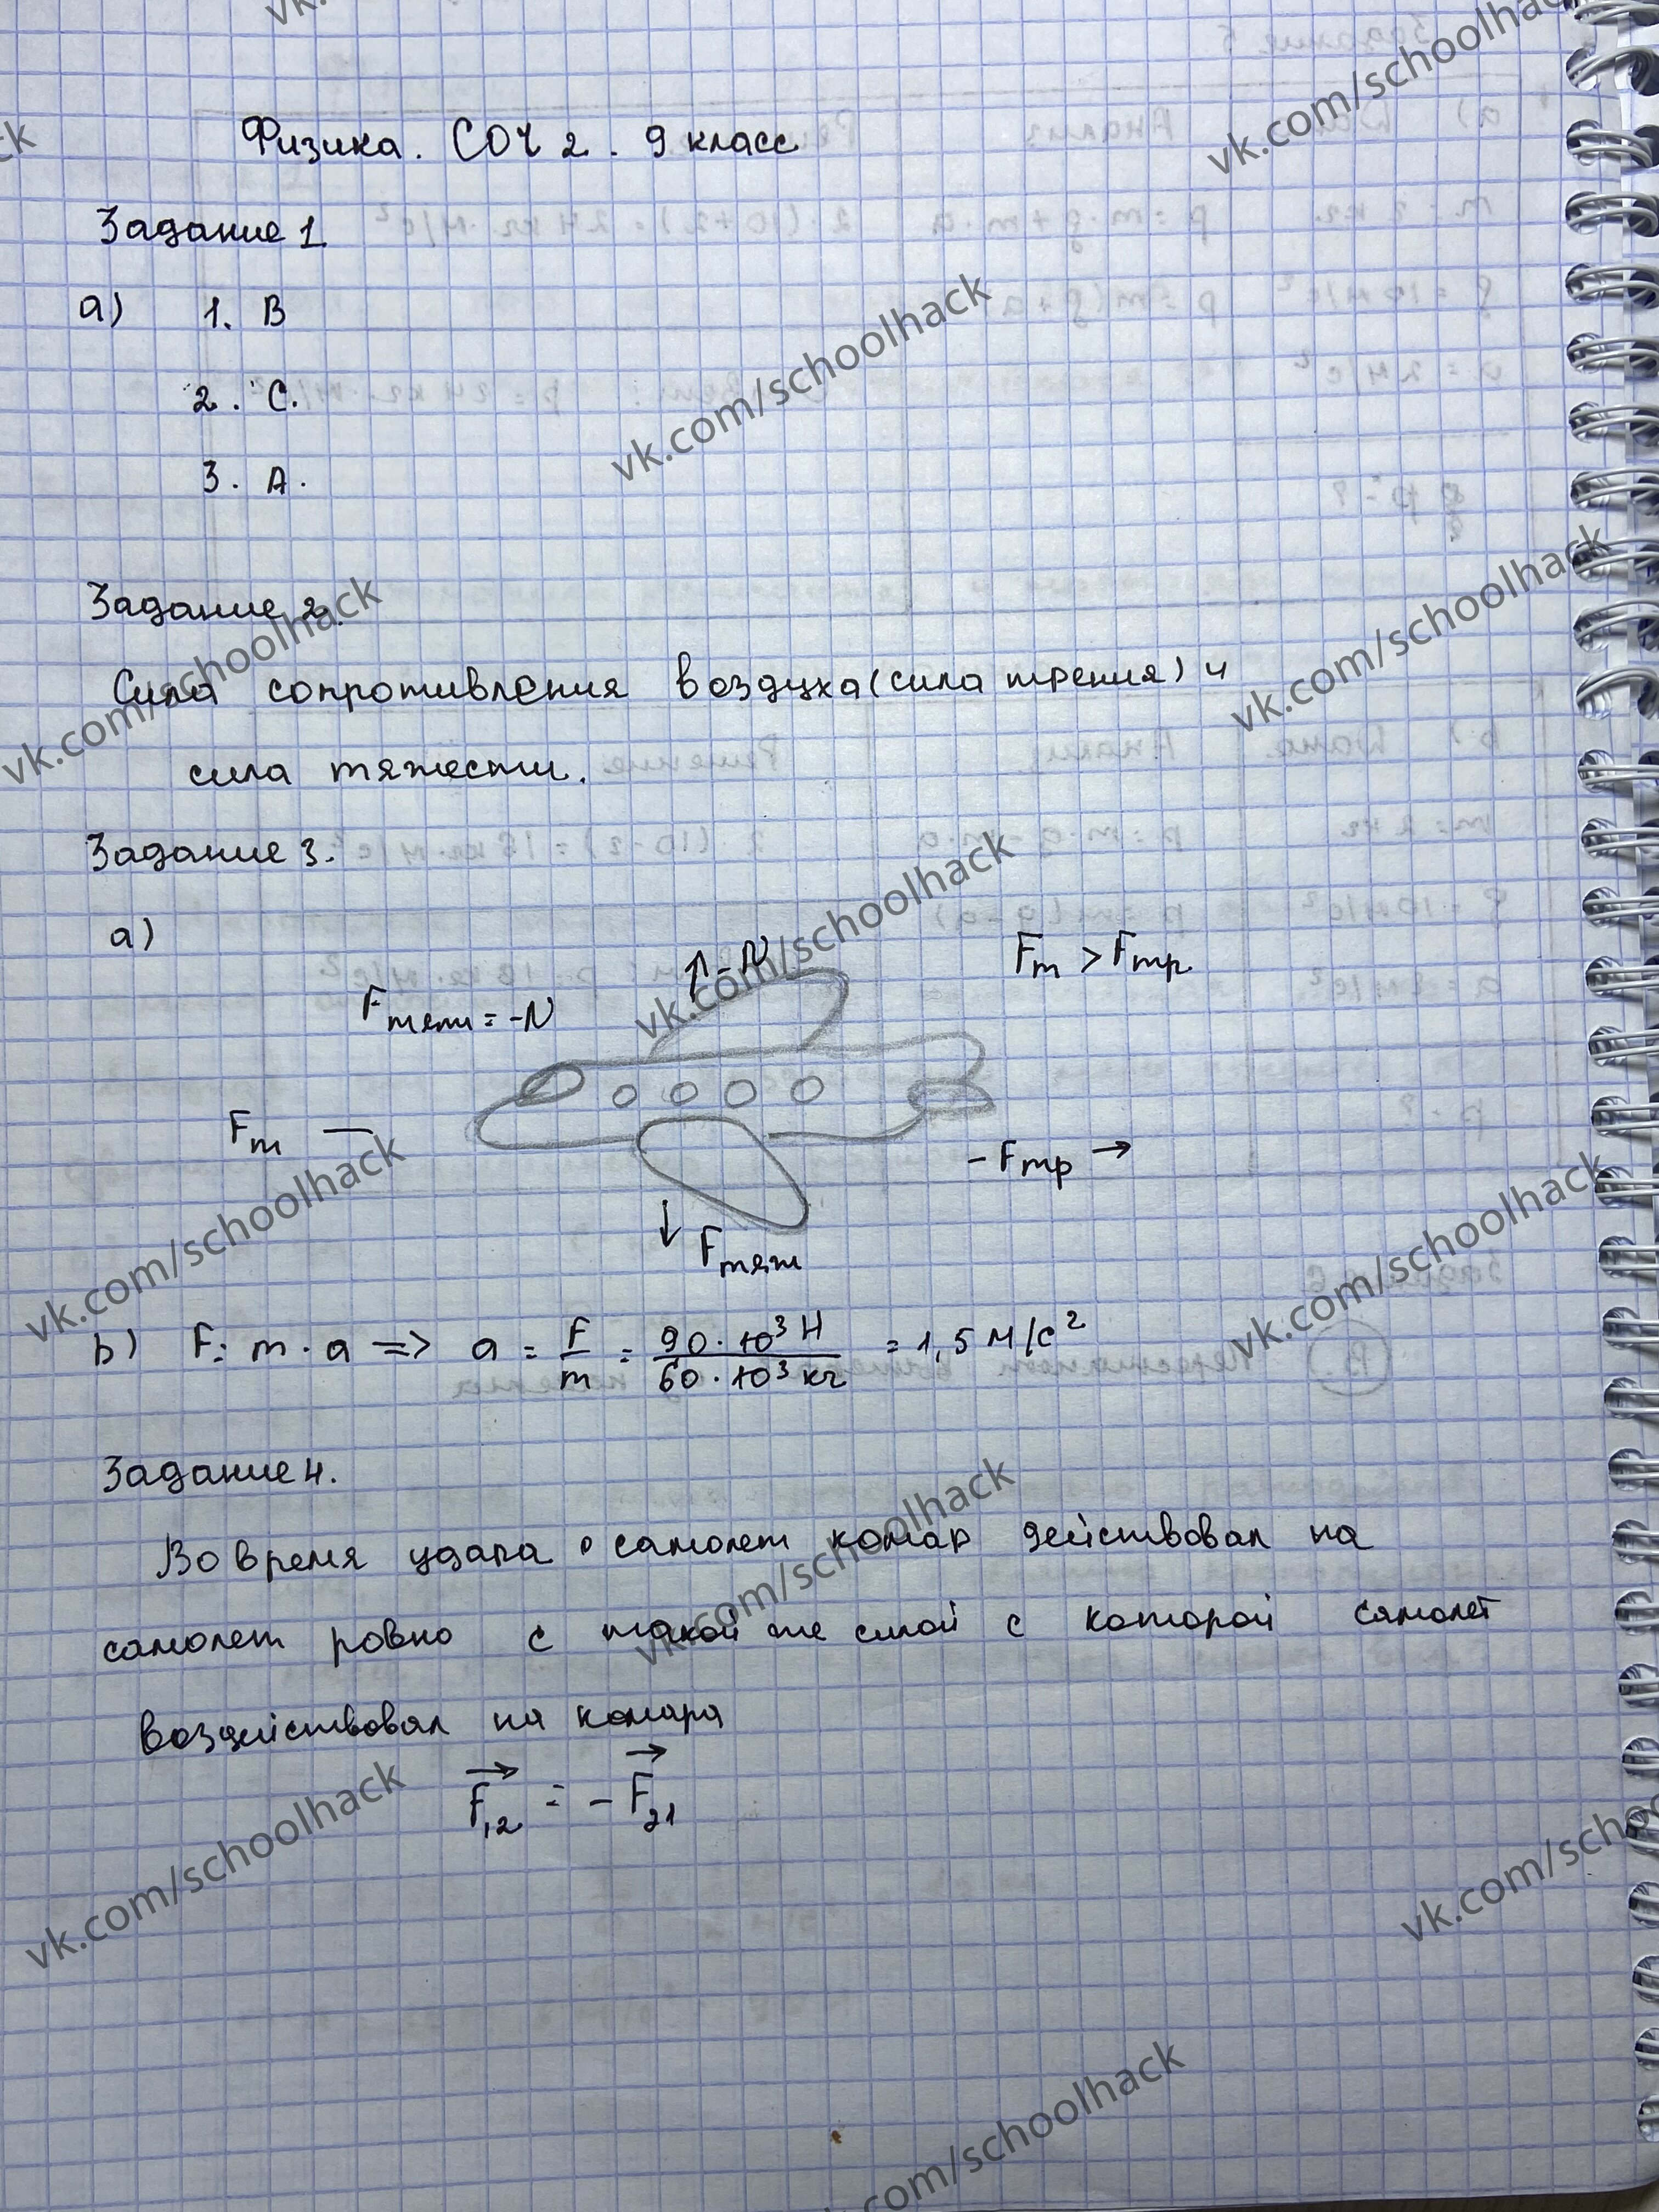 Физика. СОЧ 2. 9 класс
Задание 1
а) 1. В
2. С.
3. А.
Задание 2.
Сила сопротивления воздуха (сила трения) и
сила тяжести.
Задание 3.
а)
↑ -N
Fт > Fтр
Fтяж = -N
Fт —
- Fтр →
↓ Fтяж
b) F = m · a => a = F/m = 90 · 10³ Н / 60 · 10³ кг = 1,5 м/с²
Задание 4.
Во время удара о самолет комар действовал на
самолет ровно с такой же силой с которой самолет
воздействовал на комара
F₁₂ = - F₂₁
vk.com/schoolhack
vk.com/schoolhack
vk.com/schoolhack
vk.com/schoolhack
vk.com/schoolhack
vk.com/schoolhack
vk.com/schoolhack
vk.com/schoolhack
vk.com/schoolhack
vk.com/schoolhack
vk.com/schoo
.com/schoolhack